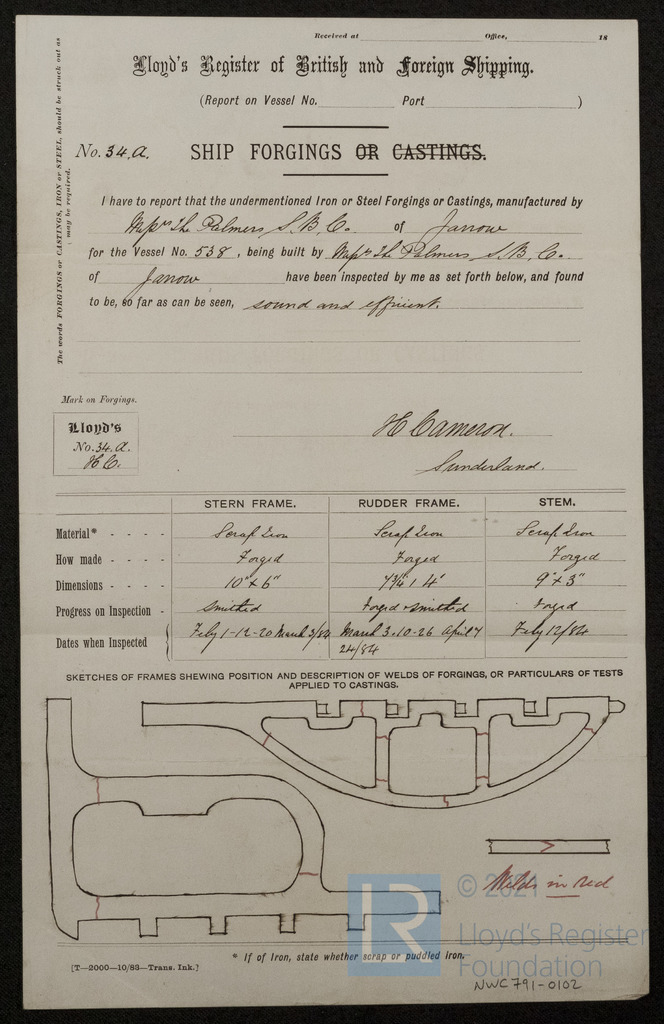 Received at Office, 18
Lloyd's Register of British and Foreign Shipping.
(Report on Vessel No. Port )
No. 34.A. SHIP FORGINGS OR CASTINGS.
The words FORGINGS or CASTINGS, IRON or STEEL, should be struck out as
may be required.
I have to report that the undermentioned Iron or Steel Forgings or Castings, manufactured by
Messrs The Palmers S.B. Co. of Jarrow
for the Vessel No. 538, being built by Messrs The Palmers S.B. Co.
of Jarrow have been inspected by me as set forth below, and found
to be, so far as can be seen, sound and efficient.
Mark on Forgings.
Lloyd's
No. 34.A.
H C.
H Cameron.
Sunderland.
STERN FRAME. RUDDER FRAME. STEM.
Material* - - - - Scrap Iron Scrap Iron Scrap Iron
How made - - - - Forged Forged Forged
Dimensions - - - - 10" x 6" 4" 9" x 3"
Progress on Inspection - Smithed Forged & Smithed Forged
Dates when Inspected { Feby 1-12-20 March 3/84 March 3.10-26 April 7 Feby 12/84
24/84
SKETCHES OF FRAMES SHEWING POSITION AND DESCRIPTION OF WELDS OF FORGINGS, OR PARTICULARS OF TESTS
APPLIED TO CASTINGS.
Welds in red
* If of Iron, state whether scrap or puddled iron.
[T—2000—10/83—Trans. Ink.]
© 2021
Lloyd's Register
Foundation
NWC791-0102